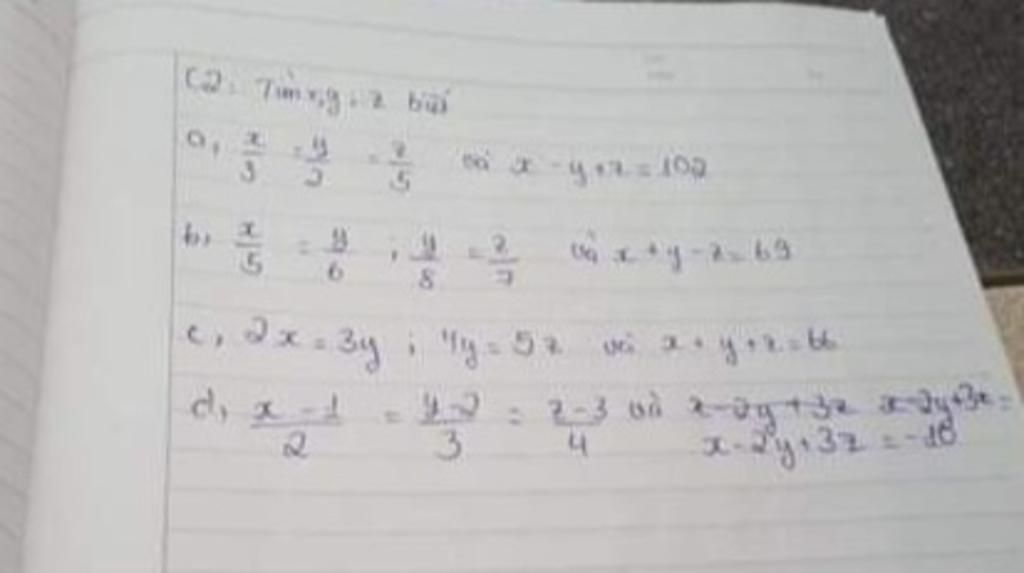 C2: Tìm x, y, z biết
a, x/3 = y/2 = z/5 và x - y + z = 102
b, x/5 = y/6 ; y/8 = z/7 và x + y - z = 69
c, 2x = 3y ; 4y = 5z và x + y + z = 66
d, x-1/2 = y-2/3 = z-3/4 và x-2y+3z x-2y+3z =
x-2y+3z = -10